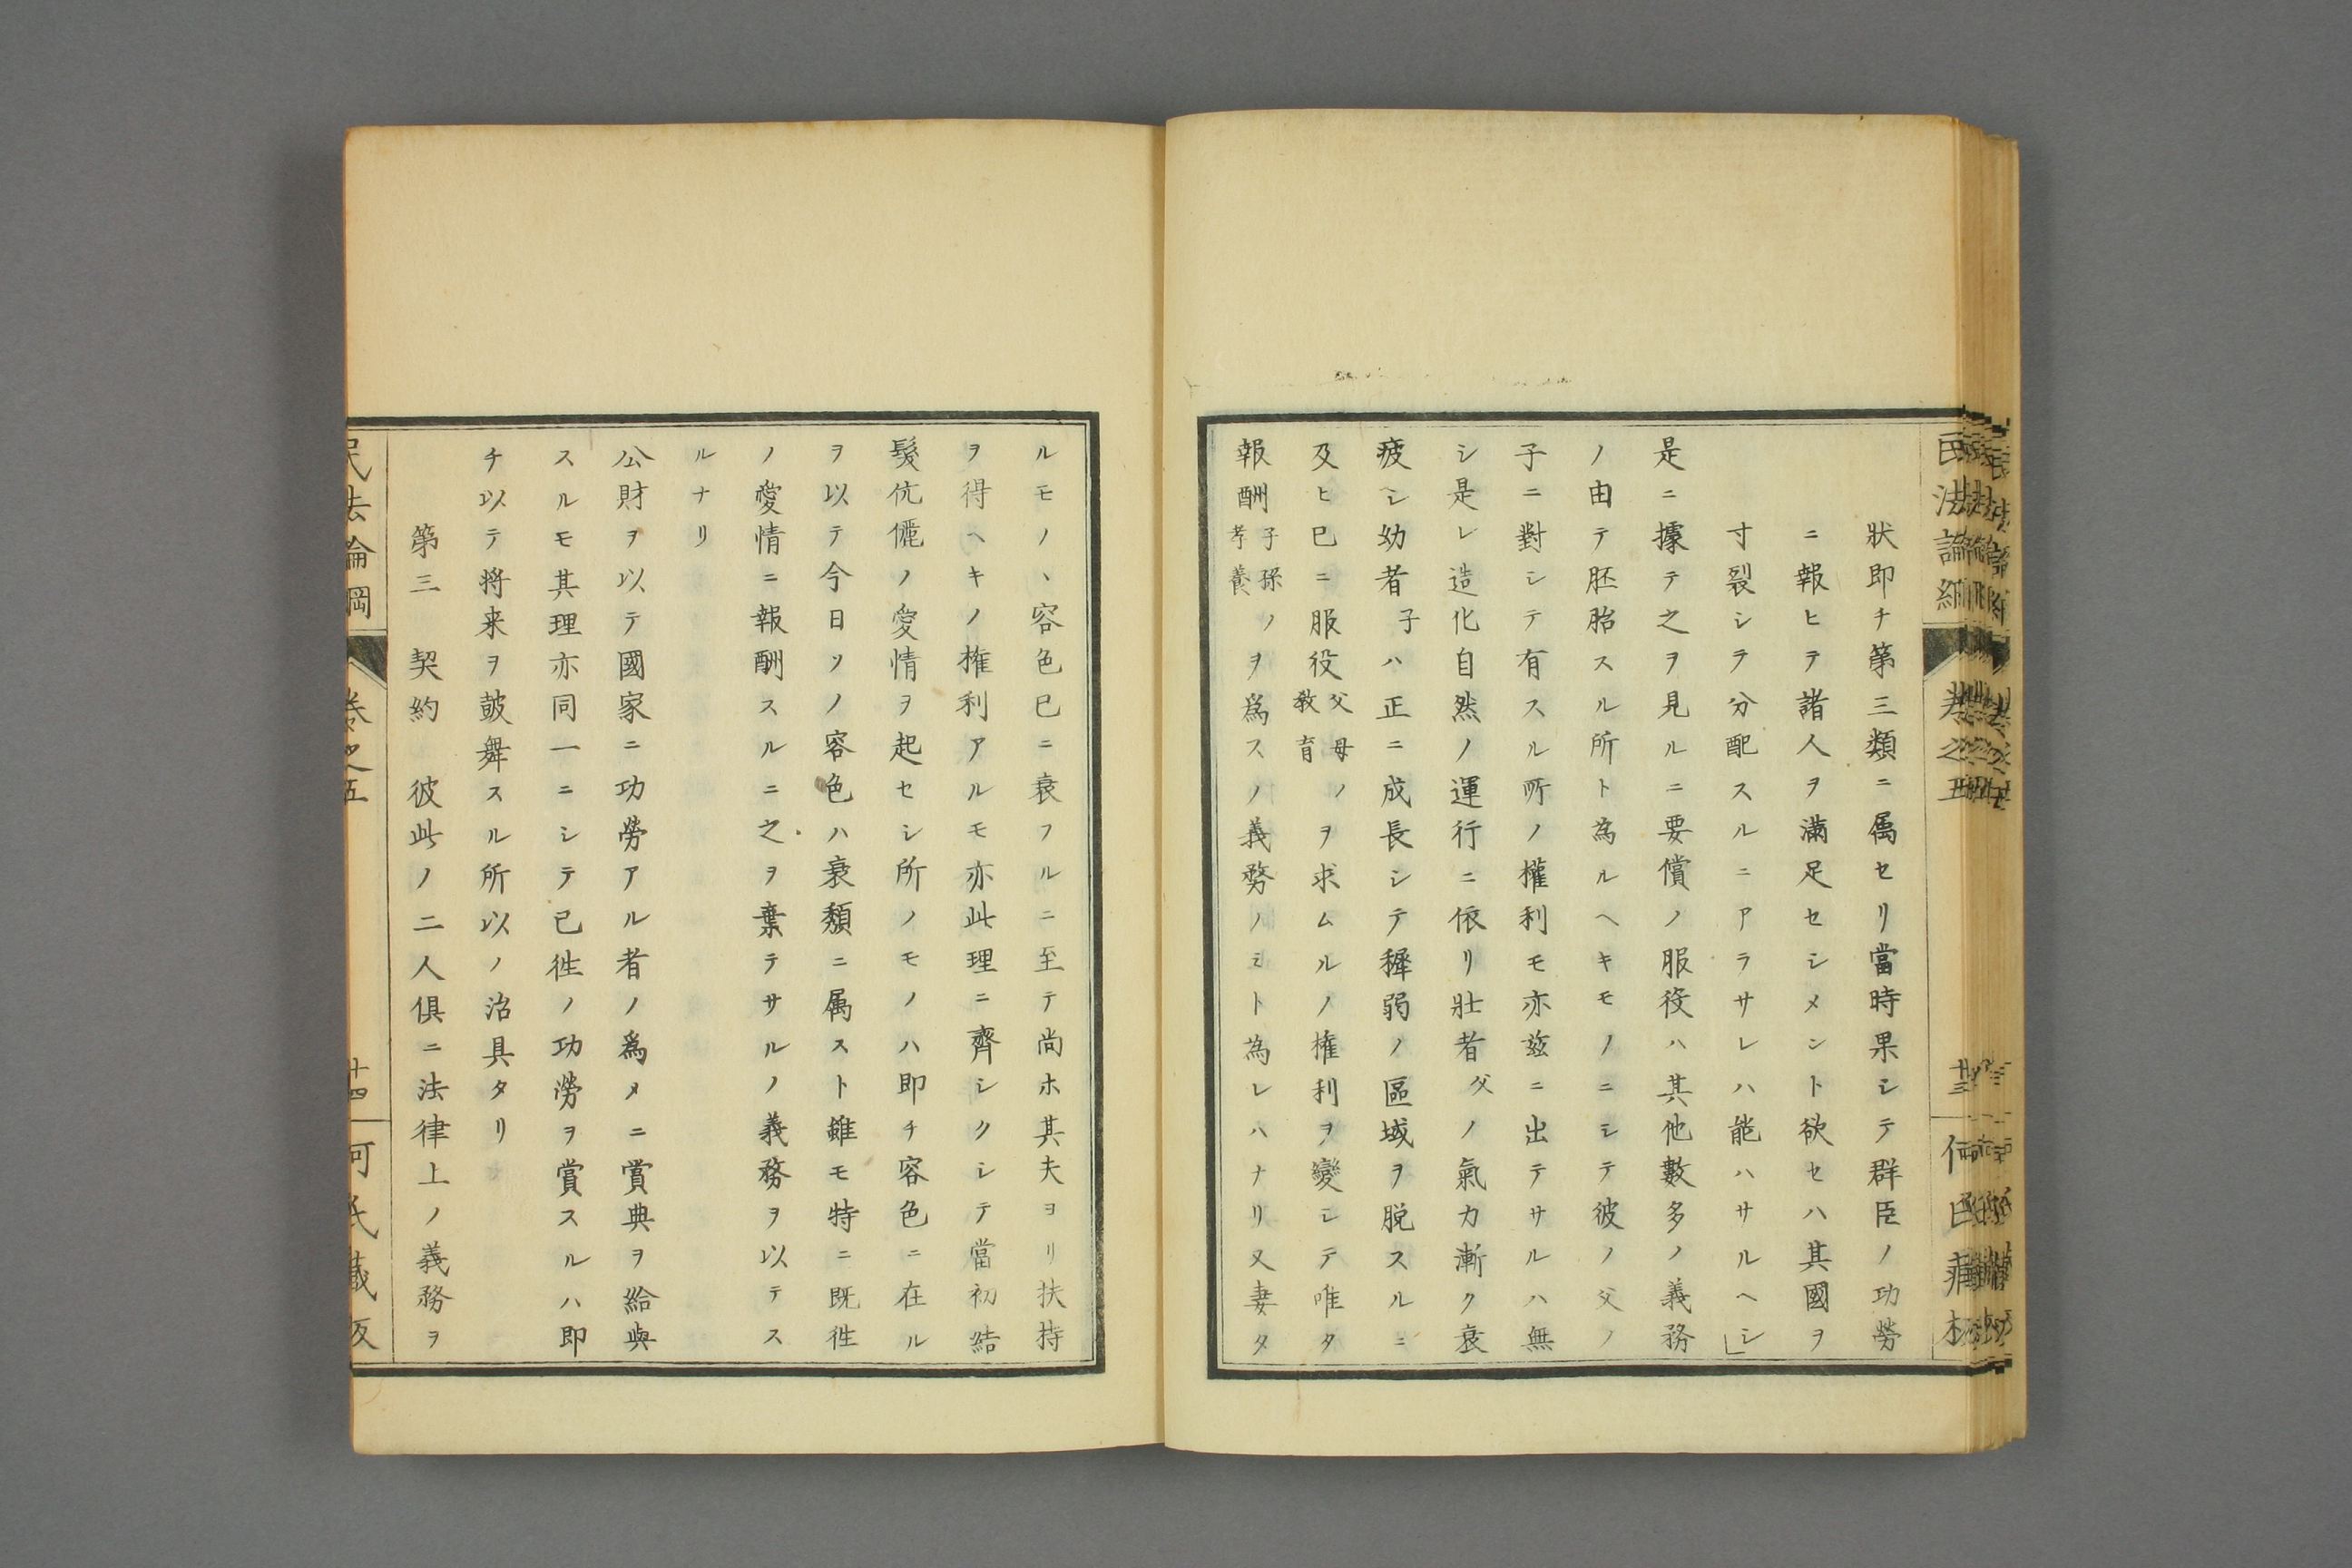 狀即チ第三類ニ属セリ當時果シテ群臣ノ功勞
ニ報ヒテ諸人ヲ滿足セシメント欲セハ其國ヲ
寸裂シテ分配スルニアラサレハ能ハサルヘシ」
是ニ據テ之ヲ見ルニ要償ノ服役ハ其他數多ノ義務
ノ由テ胚胎スル所ト為ルヘキモノニシテ彼ノ父ノ
子ニ對シテ有スル所ノ權利モ亦玆ニ出テサルハ無
シ是レ造化自然ノ運行ニ依リ壮者父ノ氣力漸ク衰
疲シ幼者子ハ正ニ成長シテ穉弱ノ區域ヲ脱スルニ
及ヒ已ニ服役父母ノ教育ヲ求ムルノ權利ヲ變シテ唯タ
報酬子孫ノ孝養ヲ爲スノ義務ノミト為レハナリ又妻タ
ルモノヽ容色已ニ衰フルニ至テ尚ホ其夫ヨリ扶持
ヲ得ヘキノ権利アルモ亦此理ニ齊シクシテ當初結
髪伉儷ノ愛情ヲ起セシ所ノモノハ即チ容色ニ在ル
ヲ以テ今日ソノ容色ハ衰頽ニ属スト雖モ特ニ既往
ノ愛情ニ報酬スルニ之ヲ棄テサルノ義務ヲ以テス
ルナリ
公財ヲ以テ國家ニ功勞アル者ノ爲メニ賞典ヲ給與
スルモ其理亦同一ニシテ已往ノ功勞ヲ賞スルハ即
チ以テ将来ヲ皷舞スル所以ノ治具タリ
第三　契約　彼此ノ二人俱ニ法律上ノ義務ヲ
民法論綱　卷之五　十四　何氏藏板